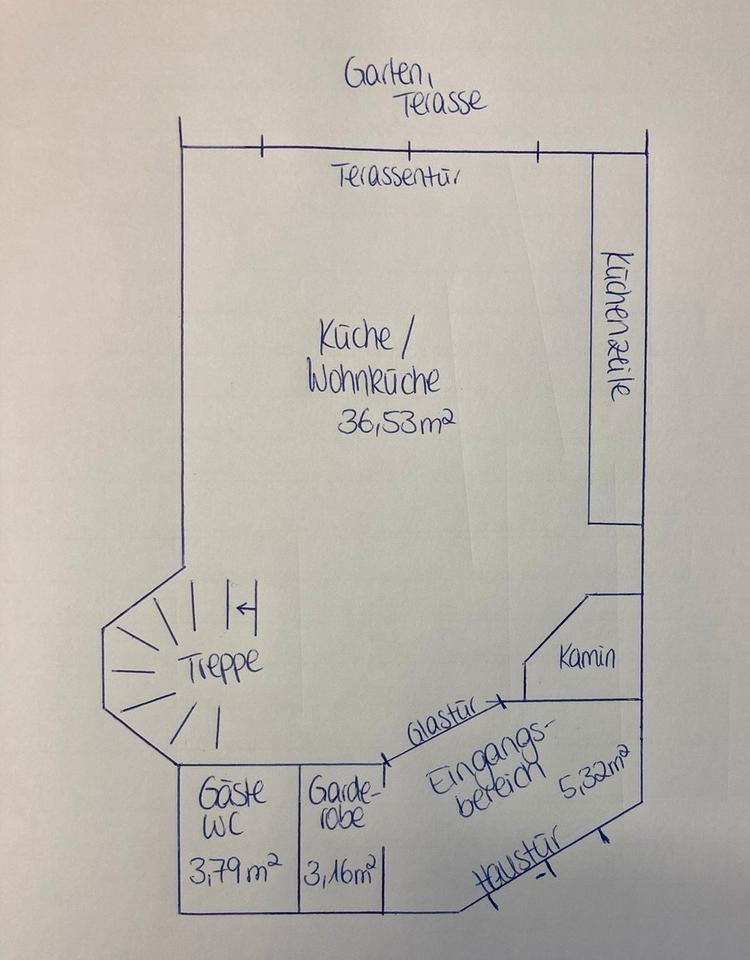 Garten,
Terasse
Terassentür
Küchenzeile
Küche /
Wohnküche
36,53m²
Treppe
Kamin
Glastür
Eingangs-
bereich
5,32m²
Gäste
WC
3,79m²
Garde-
robe
3,16m²
Haustür